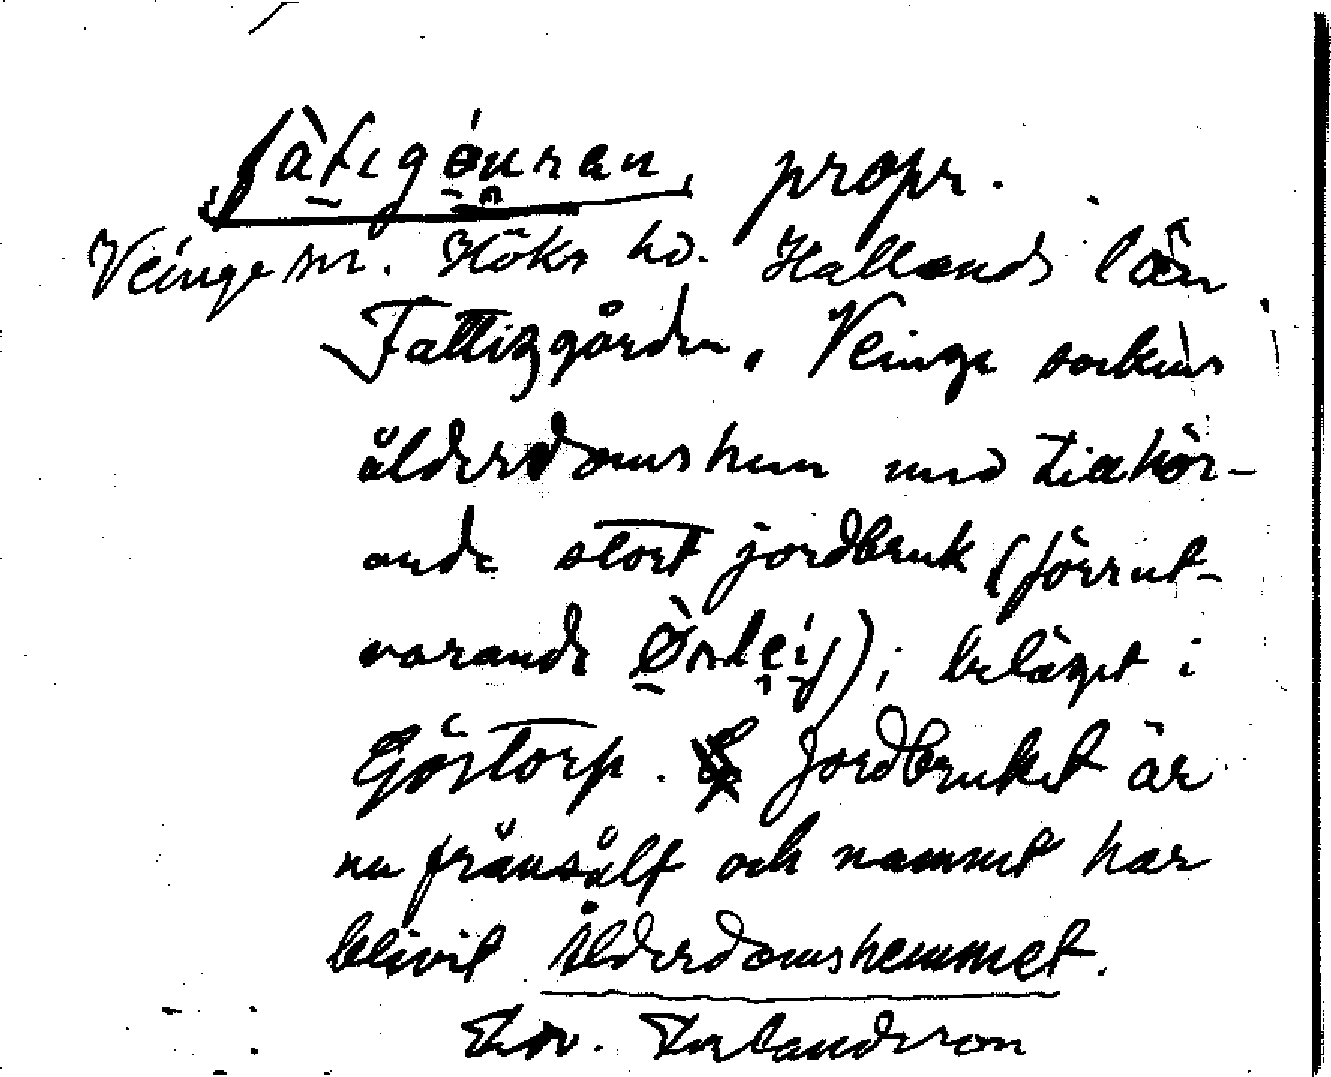 fàtigǿuran, propr.
Veinge sn. Höks hd. Hallands län
Fattiggården, Veinge sockens
ålderdomshem med tillhör-
ande stort jordbruk (förut-
varande); beläget i
Göstorp. Jordbruket är
nu frånsålt och namnet har
blivit Ålderdomshemmet.